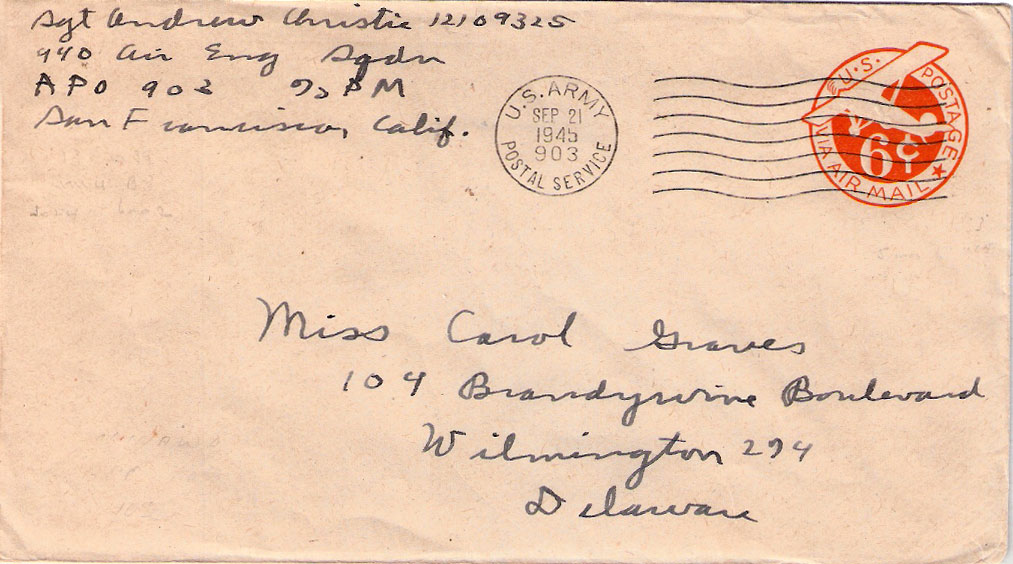 Sgt Andrew Christie 12109325
940 Air Eng Sqdn
APO 903 % PM
San Francisco, Calif.
U.S. ARMY
SEP 21
1945
903
POSTAL SERVICE
U.S. POSTAGE
6¢
VIA AIR MAIL
Miss Carol Graves
104 Brandywine Boulevard
Wilmington 294
Delaware